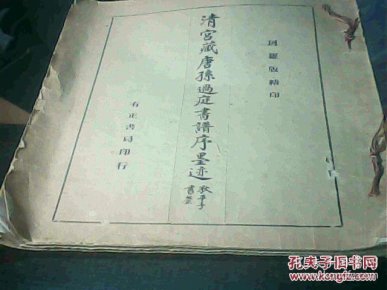 珂羅版精印
清宮藏唐孫過庭書譜序墨迹
狄平子
書簽
有正書局印行
孔夫子旧书网